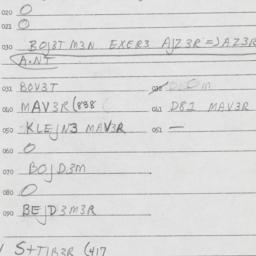 020 O
021 O
030 BOJ3T M3N EXER3 AJZ3R => AZ3R
A.NT
031 BOV3T
040 MAV3R (838 041 D81 MAV3R
050 KLEJN3 MAV3R 051 —
060 O
070 BOJD3M
080 O
090 BEJD3M3R
S+TIB3R (417